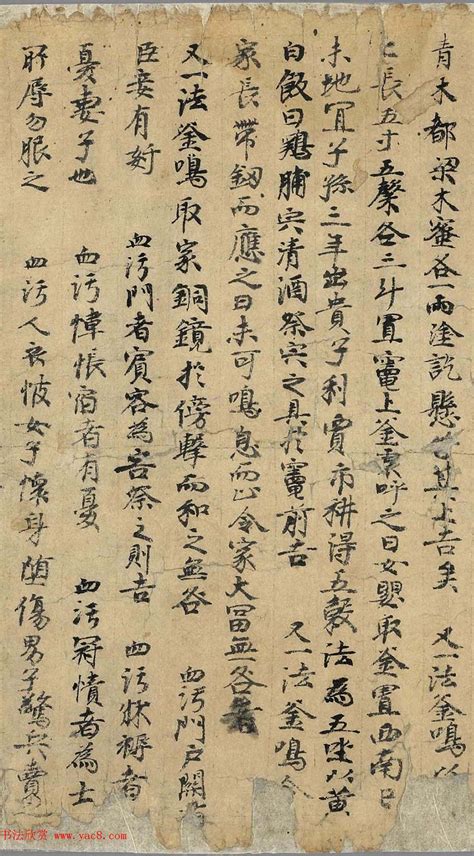 青木都梁木蜜各一兩塗訖懸其上吉矣 又一法釜鳴以
長五寸五穀各三斗置竈上釜東呼之曰女嬰取釜置西南
未地宜子孫三年出貴子利賣市耕得五穀法為五坐以黃
白飯曰鶏脯宍清酒祭宍之具於竈前吉 又一法釜鳴令
家長帶釼而應之曰未可鳴息而止令家大冨無各
又一法釜鳴取家銅鏡於傍擊而和之無咎 血汚門戶關
臣妾有奸 血汚門者賓客為害祭之則吉 血汚牀褥者
憂妻子也 血汚幃帳宿者有憂 血汚冠幘者為士
所辱勿服之 血汚人衣帔女子懷身堕傷男子驚兵賣
书法欣赏 www.yac8.com